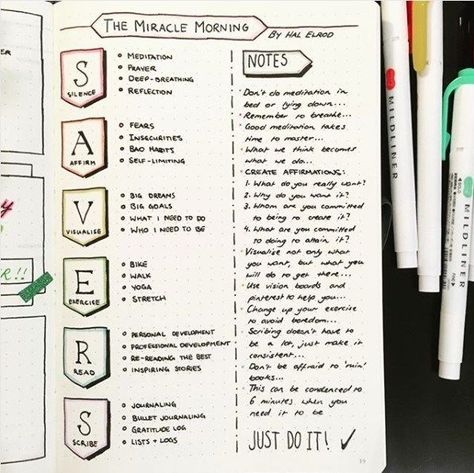 The Miracle Morning
By Hal Elrod
S
Silence
Meditation
Prayer
Deep-Breathing
Reflection
A
Affirm
Fears
Insecurities
Bad Habits
Self-Limiting
V
Visualise
Big Dreams
Big Goals
What I need to do
Who I need to be
E
Exercise
Bike
Walk
Yoga
Stretch
R
Read
Personal Development
Professional Development
Re-reading the best
Inspiring stories
S
Scribe
Journaling
Bullet journaling
Gratitude log
Lists + logs
NOTES
Don't do meditation in
bed or lying down...
Remember to breathe...
Good meditation takes
time to master...
What we think becomes
what we do...
CREATE AFFIRMATIONS:
1. What do you really want?
2. Why do you want it?
3. Whom are you committed
to being to create it?
4. What are you committed
to doing to attain it?
Visualise not only what
you want, but what you
will do to get there...
Use vision boards and
pinterest to help you...
Change up your exercise
to avoid boredom...
Scribing doesn't have to
be a lot, just make it
consistent...
Don't be afraid to 'ruin'
books...
This can be condensed to
6 minutes when you
need it to be
JUST DO IT! ✓
MILDLINER
MILDLINER